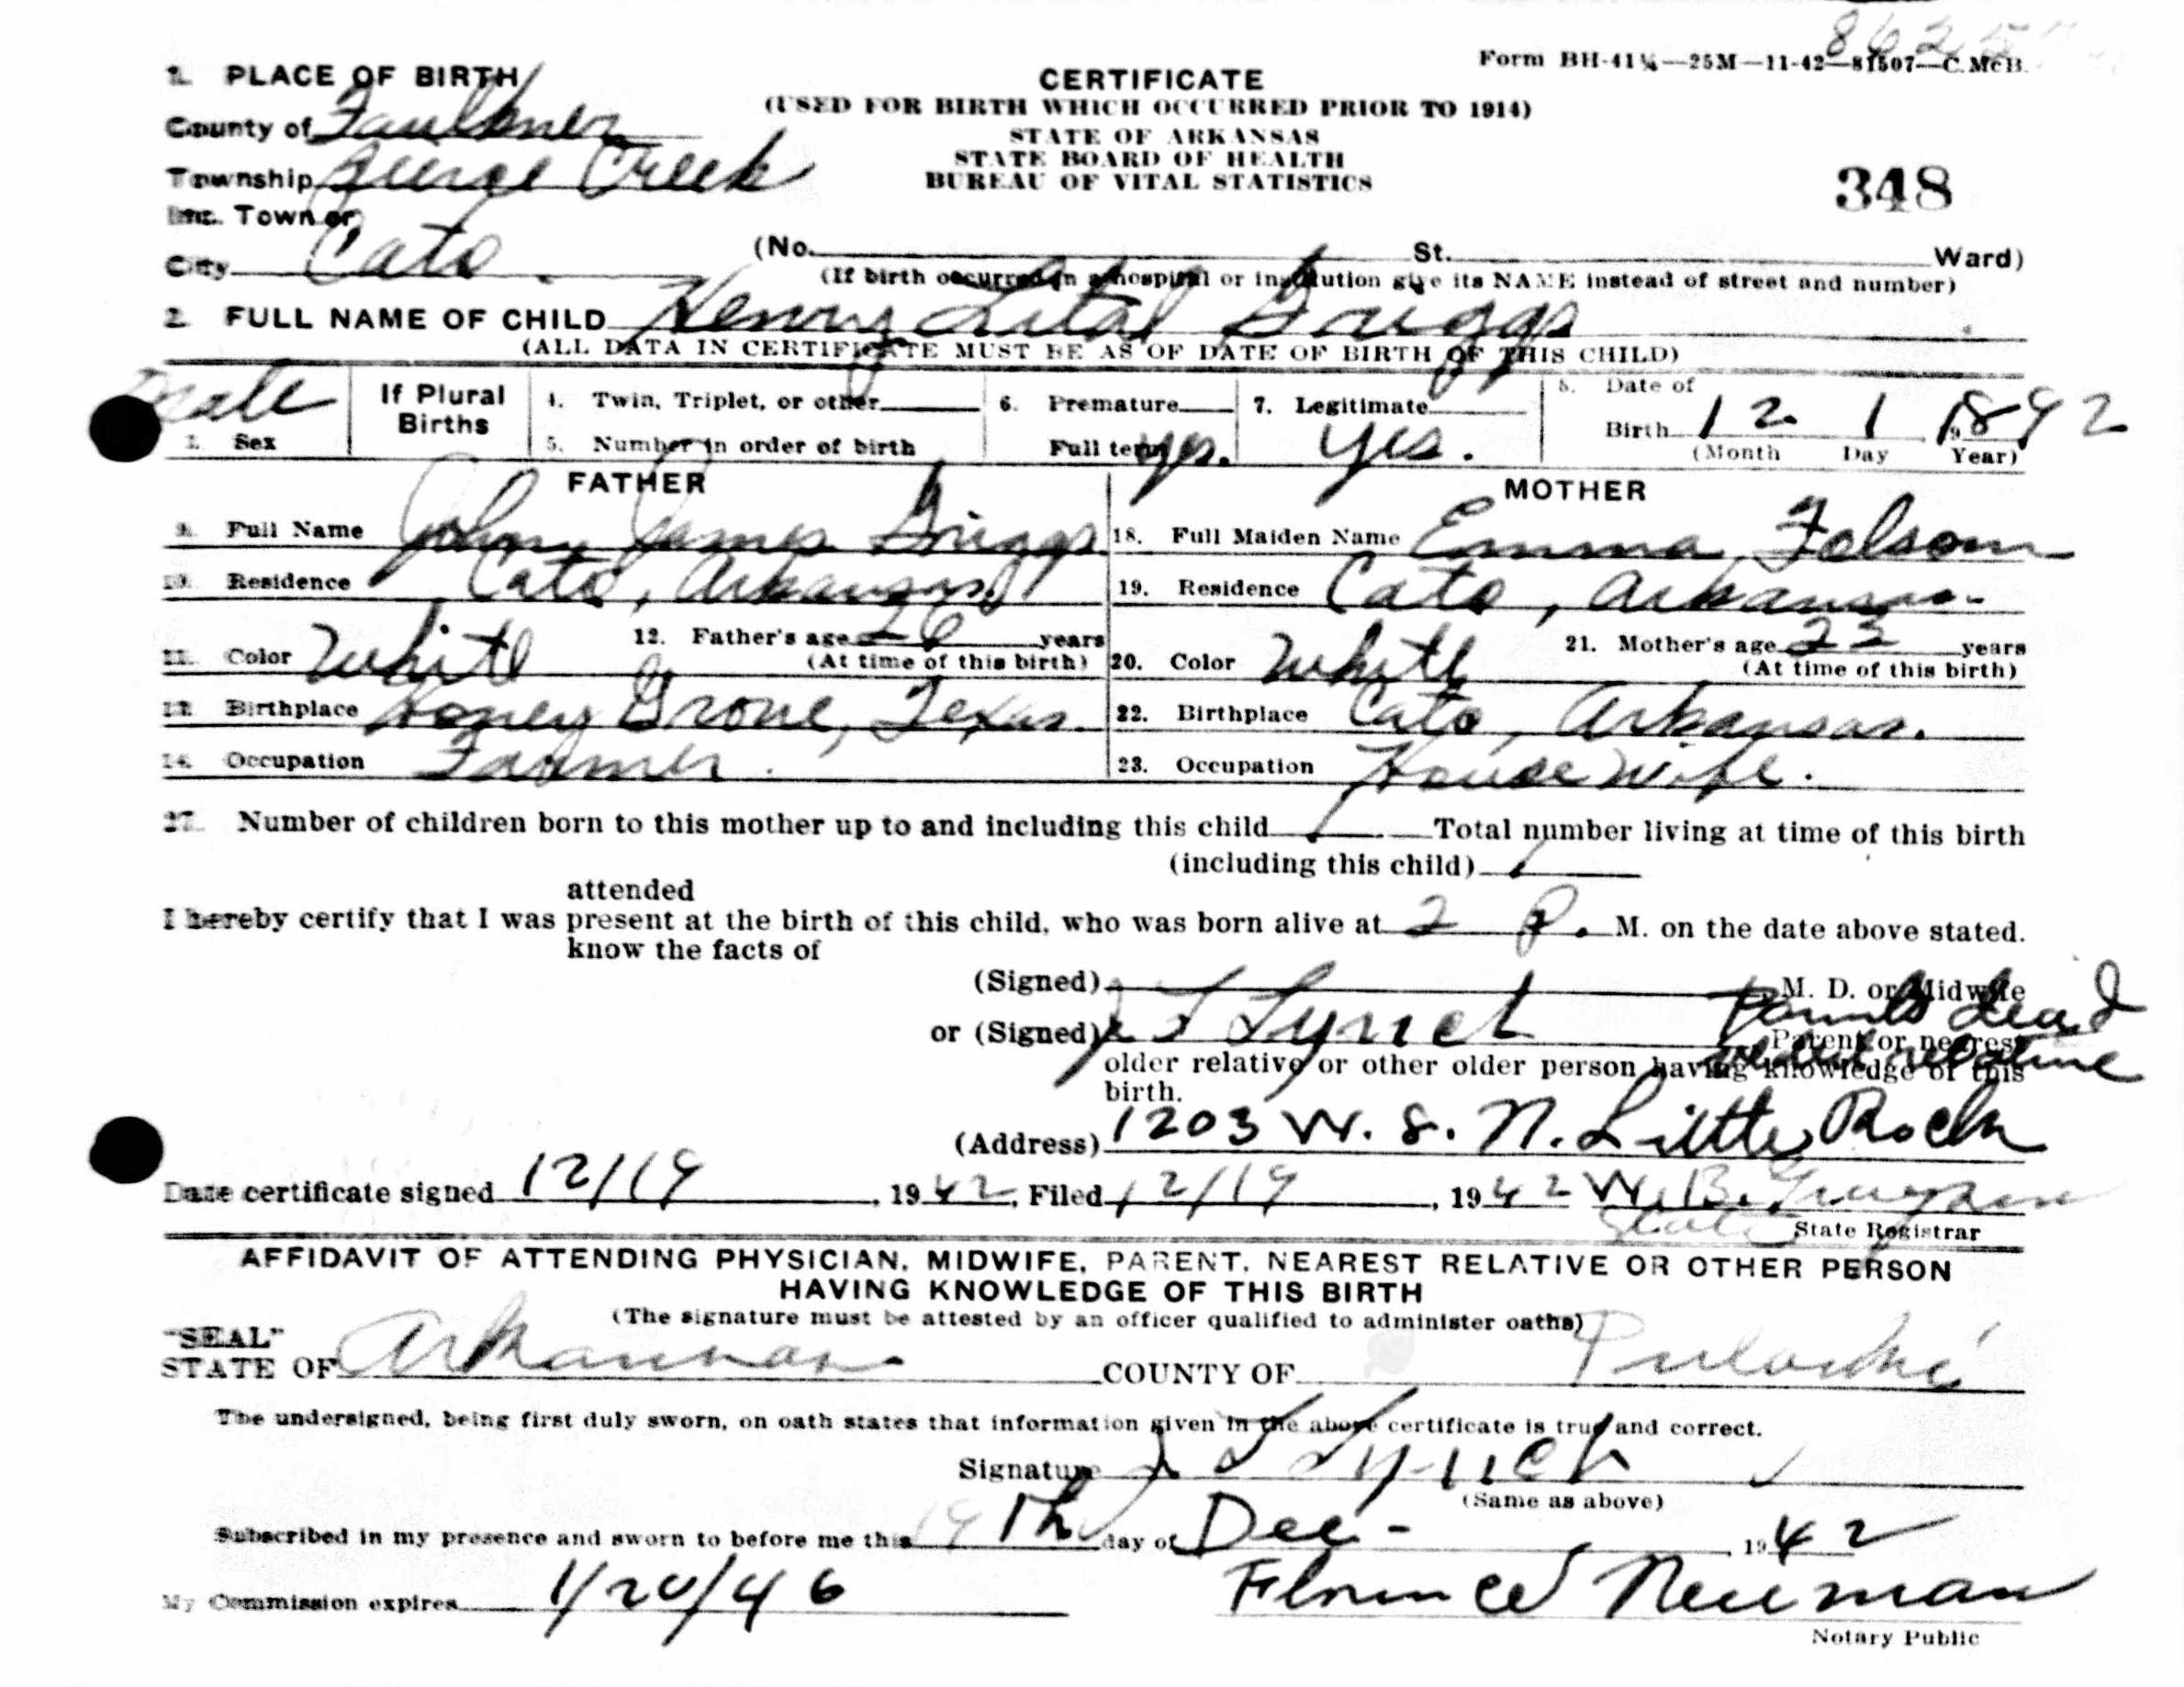 Form BH-41¼—25M—11-42—81507—C. McB.
1. PLACE OF BIRTH
CERTIFICATE
(USED FOR BIRTH WHICH OCCURRED PRIOR TO 1914)
County of Faulkner
STATE OF ARKANSAS
STATE BOARD OF HEALTH
Township Creek
BUREAU OF VITAL STATISTICS
348
Inc. Town or
City Cato
(No. St. Ward)
(If birth occurred in a hospital or institution give its NAME instead of street and number)
2. FULL NAME OF CHILD Henry Lital Griggs
(ALL DATA IN CERTIFICATE MUST BE AS OF DATE OF BIRTH OF THIS CHILD)
Male
3. Sex
If Plural Births
4. Twin, Triplet, or other
5. Number in order of birth
6. Premature
Full term yes.
7. Legitimate
yes.
8. Date of
Birth 12 1 1892
(Month Day Year)
FATHER
MOTHER
9. Full Name John James Griggs
18. Full Maiden Name Emma Folsom
10. Residence Cato, Arkansas
19. Residence Cato, Arkansas
11. Color White
12. Father's age 26 years
(At time of this birth)
20. Color White
21. Mother's age 23 years
(At time of this birth)
13. Birthplace Honey Grove, Texas.
22. Birthplace Cato, Arkansas.
14. Occupation Farmer.
23. Occupation House wife.
27. Number of children born to this mother up to and including this child 1 Total number living at time of this birth
(including this child) 1
attended
I hereby certify that I was present at the birth of this child, who was born alive at 2 P. M. on the date above stated.
know the facts of
(Signed) M. D. or Midwife
Parents dead
or (Signed) J L Lynch Parent or nearest
relative
older relative or other older person having knowledge of this
birth.
(Address) 1203 W. 8. N. Little Rock
Date certificate signed 12/19, 1942, Filed 12/19, 1942 W. B. Grayson
State
State Registrar
AFFIDAVIT OF ATTENDING PHYSICIAN, MIDWIFE, PARENT, NEAREST RELATIVE OR OTHER PERSON
HAVING KNOWLEDGE OF THIS BIRTH
(The signature must be attested by an officer qualified to administer oaths)
"SEAL"
STATE OF Arkansas COUNTY OF Pulaski
The undersigned, being first duly sworn, on oath states that information given in the above certificate is true and correct.
Signature J L Lynch
(Same as above)
Subscribed in my presence and sworn to before me this 19th day of Dec- 1942
My Commission expires 1/20/46
Florence Neuman
Notary Public